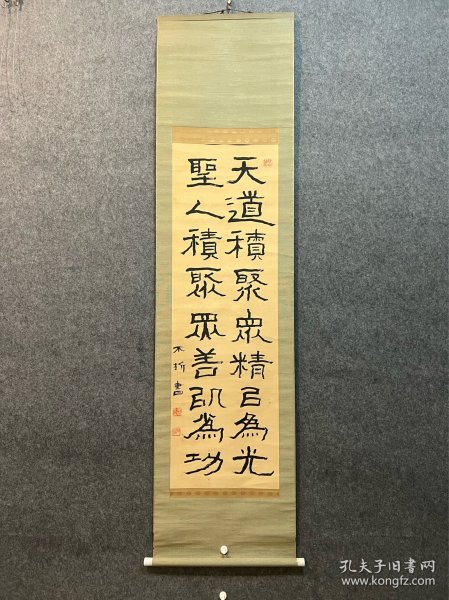 天道積聚眾精以為光
聖人積聚眾善以為功
不折書
孔夫子旧书网
www.kongfz.com